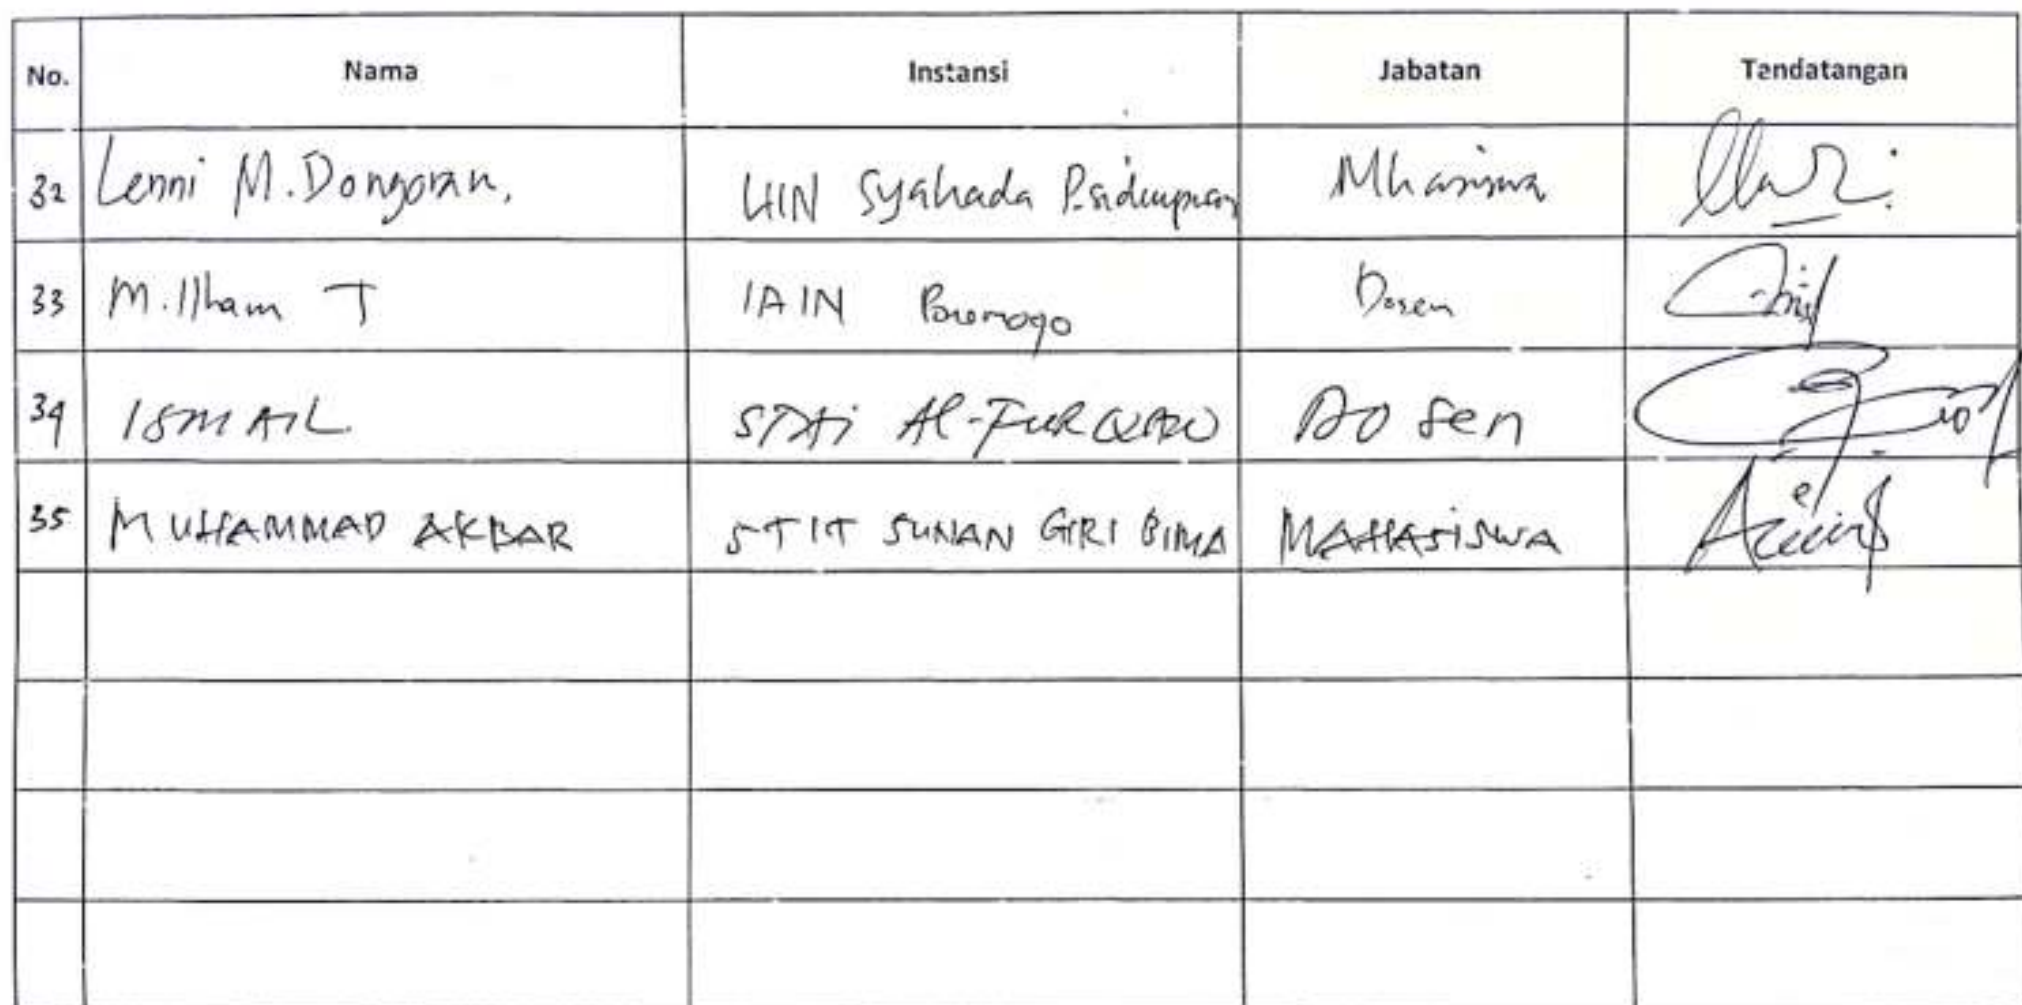 No. Nama Instansi Jabatan Tandatangan
32 Lenni M. Dongoran, UIN Syahada P.sidimpuan Mhasiswa
33 M. Ilham T IAIN Ponorogo Dosen
34 ISMAIL STAI Al-FURQAN DOsen
35 MUHAMMAD AKBAR STIT SUNAN GIRI BIMA MAHASISWA